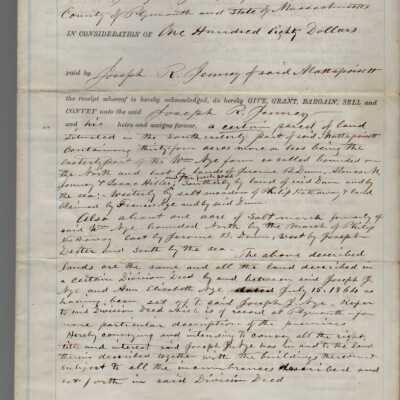 County of Plymouth and State of Massachusetts
IN CONSIDERATION OF One Hundred Eighty Dollars
paid by Joseph R. Jenney of said Mattapoisett
the receipt whereof is hereby acknowledged, do hereby GIVE, GRANT, BARGAIN, SELL and
CONVEY unto the said Joseph R. Jenney
and his heirs and assigns forever, a certain parcel of land
situated in the southeasterly part of said Mattapoisett
containing thirty four acres more or less being the
easterly part of the Wm Nye farm so called bounded on
the North and east by lands of B. Dunn,
Jenney & Isaac Southerly by land of said Dunn and by
the sea, Westerly by salt meadow of Philip Hathaway & land
claimed by Francis Nye and by said Dunn.
Also about one acre of Salt marsh formerly of
said Wm Nye bounded North by the Marsh of Philip
Hathaway East by B. Dunn, West by Joseph
Dexter and South by the sea. The above described
lands are the same and all the land described in
a certain Division Deed by and between said Joseph J.
Nye and Ann Elizabeth Nye dated July 15, 1864 as
having been set off to said Joseph J. Nye. Refer
to said Division Deed which is of record at Plymouth for
more particular description of the premises
Hereby conveying and intending to convey all the right,
title and interest said Joseph J. Nye has in and to the land
therein described together with the buildings thereon
subject to all the incumbrances described and
set forth in said Division Deed